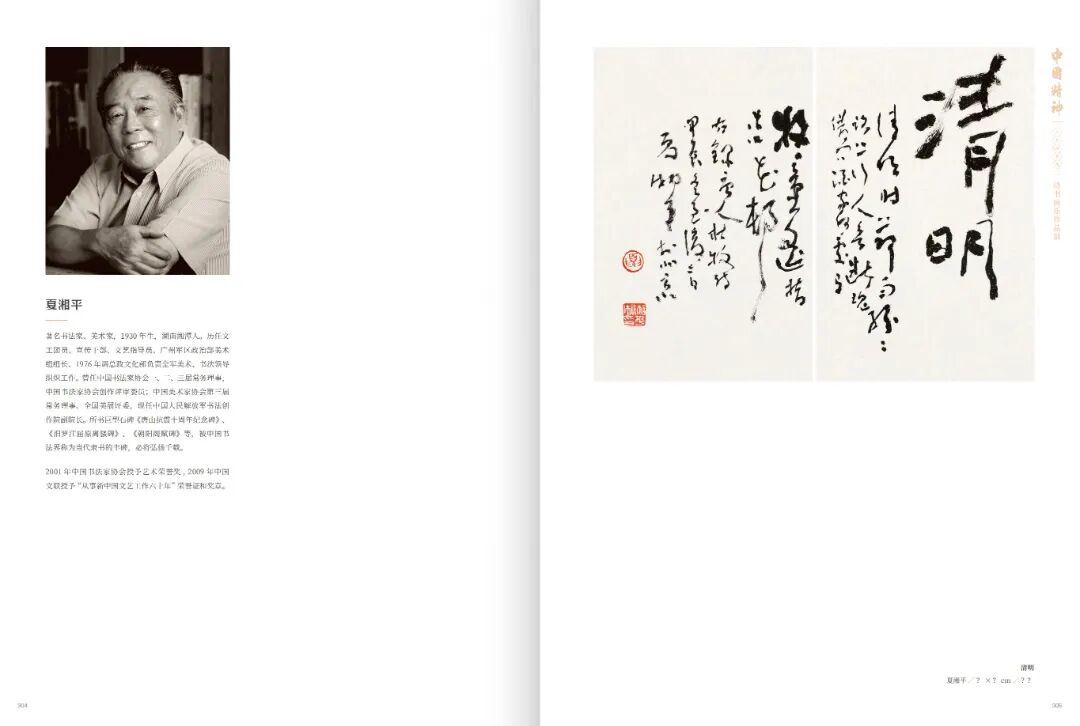 夏湘平
著名书法家、美术家，1930 年生，湖南湘潭人。历任文
工团员、宣传干部、文艺指导员、广州军区政治部美术
组组长、1976 年调总政文化部负责全军美术、书法领导
组织工作。曾任中国书法家协会一、二、三届常务理事，
中国书法家协会创作评审委员；中国美术家协会第三届
常务理事、全国美展评委，现任中国人民解放军书法创
作院副院长。所书巨型石碑《唐山抗震十周年纪念碑》、
《汨罗江屈原离骚碑》、《朝阳阁赋碑》等，被中国书
法界称为当代隶书的丰碑，必将弘扬千载。
2001 年中国书法家协会授予艺术荣誉奖，2009 年中国
文联授予“从事新中国文艺工作六十年”荣誉证和奖章。
304
清明
清明时节雨纷
路上行人欲断魂
借问酒家何处有
牧童遥指
杏花村
右录唐人杜牧诗
夏湘平
中国精神
诗书画乐作品展
清明
夏湘平／？×？ cm／？？
305